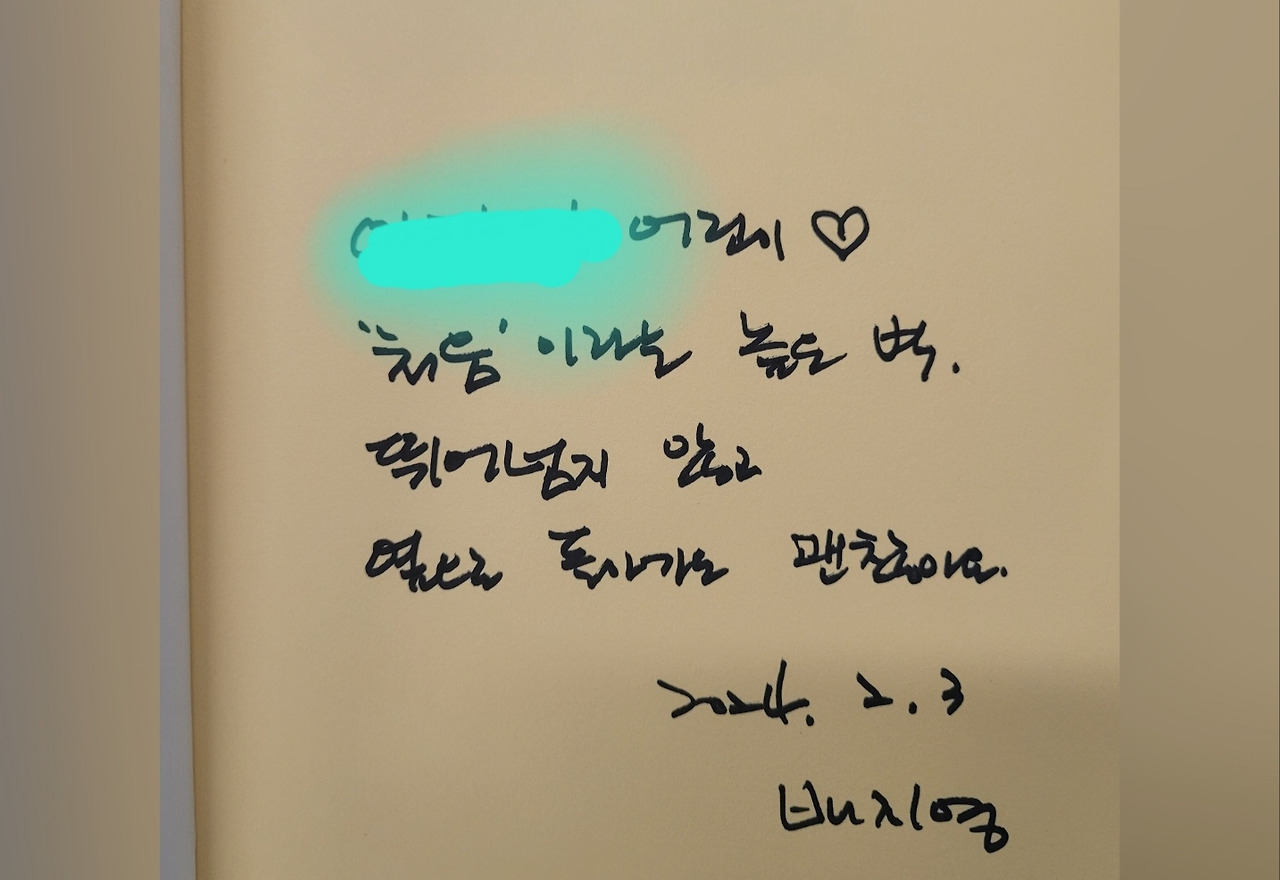 어린이 ♡
'처음'이라는 높은 벽.
뛰어넘지 않고
옆으로 돌아가도 괜찮아요.
2024. 2. 3
배지영